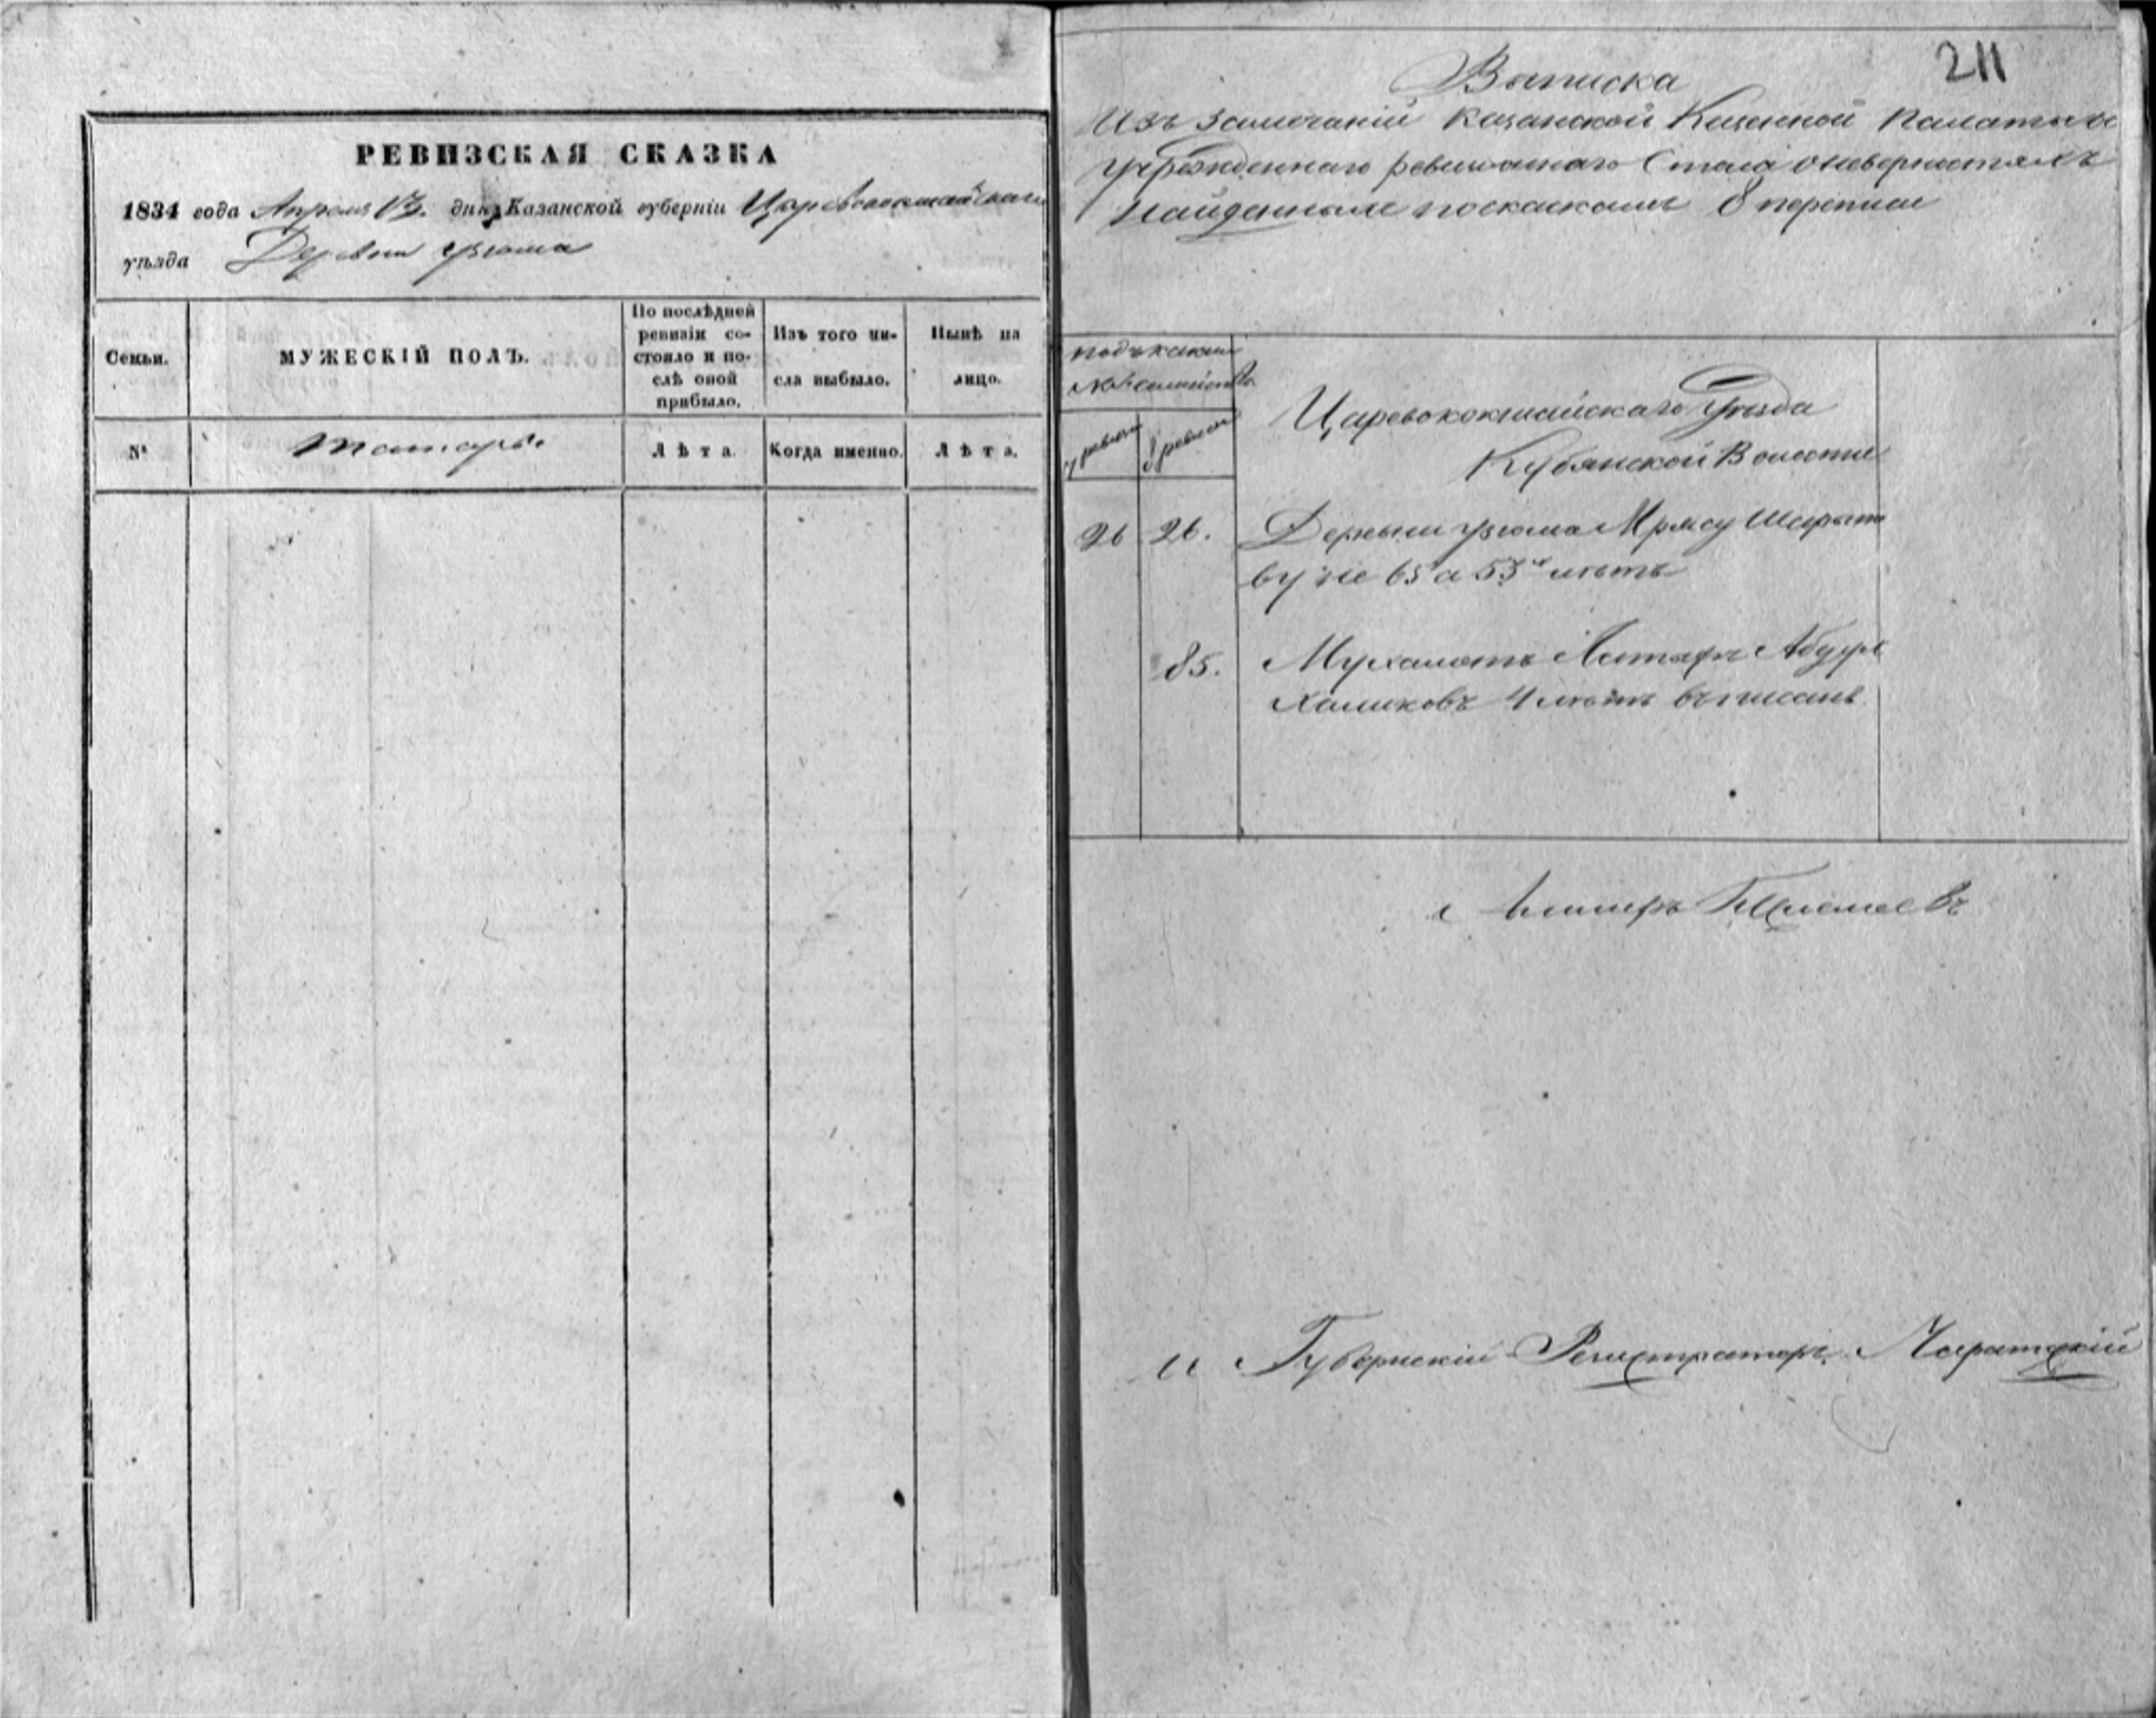 РЕВИЗСКАЯ СКАЗКА
1834 года Апреля 13. дня, Казанской губерніи Царевококшайскаго
уѣзда Деревни Узюма
Семьи.
МУЖЕСКІЙ ПОЛЪ.
По послѣдней
ревизіи со-
стояло и по-
слѣ оной
прибыло.
Изъ того чи-
сла выбыло.
Нынѣ на
лицо.
№
Татары.
Лѣта.
Когда именно.
Лѣта.
211
Выписка
Изъ замечаній Казанской Казенной Палаты
Учрежденнаго ревизіоннаго Стола о неверностяхъ
Найденныхъ по скаскамъ 8 переписи
7 ревизіи
8 ревизіи
Царевококшайскаго Уѣзда
Кубянской Волости
26
26.
Деревни Узюма
ву не 65 а 53 летъ
85.
Мухаметъ
Халиковъ 4 летъ
Губернскій Регистраторъ